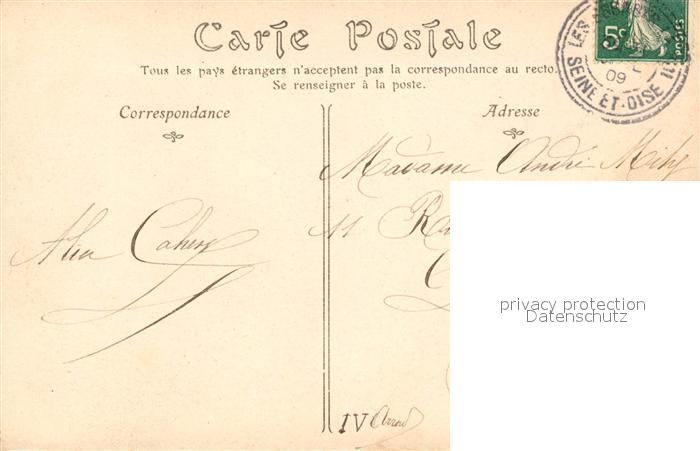 Carte Postale
Tous les pays étrangers n'acceptent pas la correspondance au recto.
Se renseigner à la poste.
Correspondance
Adresse
5c
POSTES
LES
SEINE-ET-OISE
09
Madame André
11
Cahen
privacy protection
Datenschutz
IV Arrond